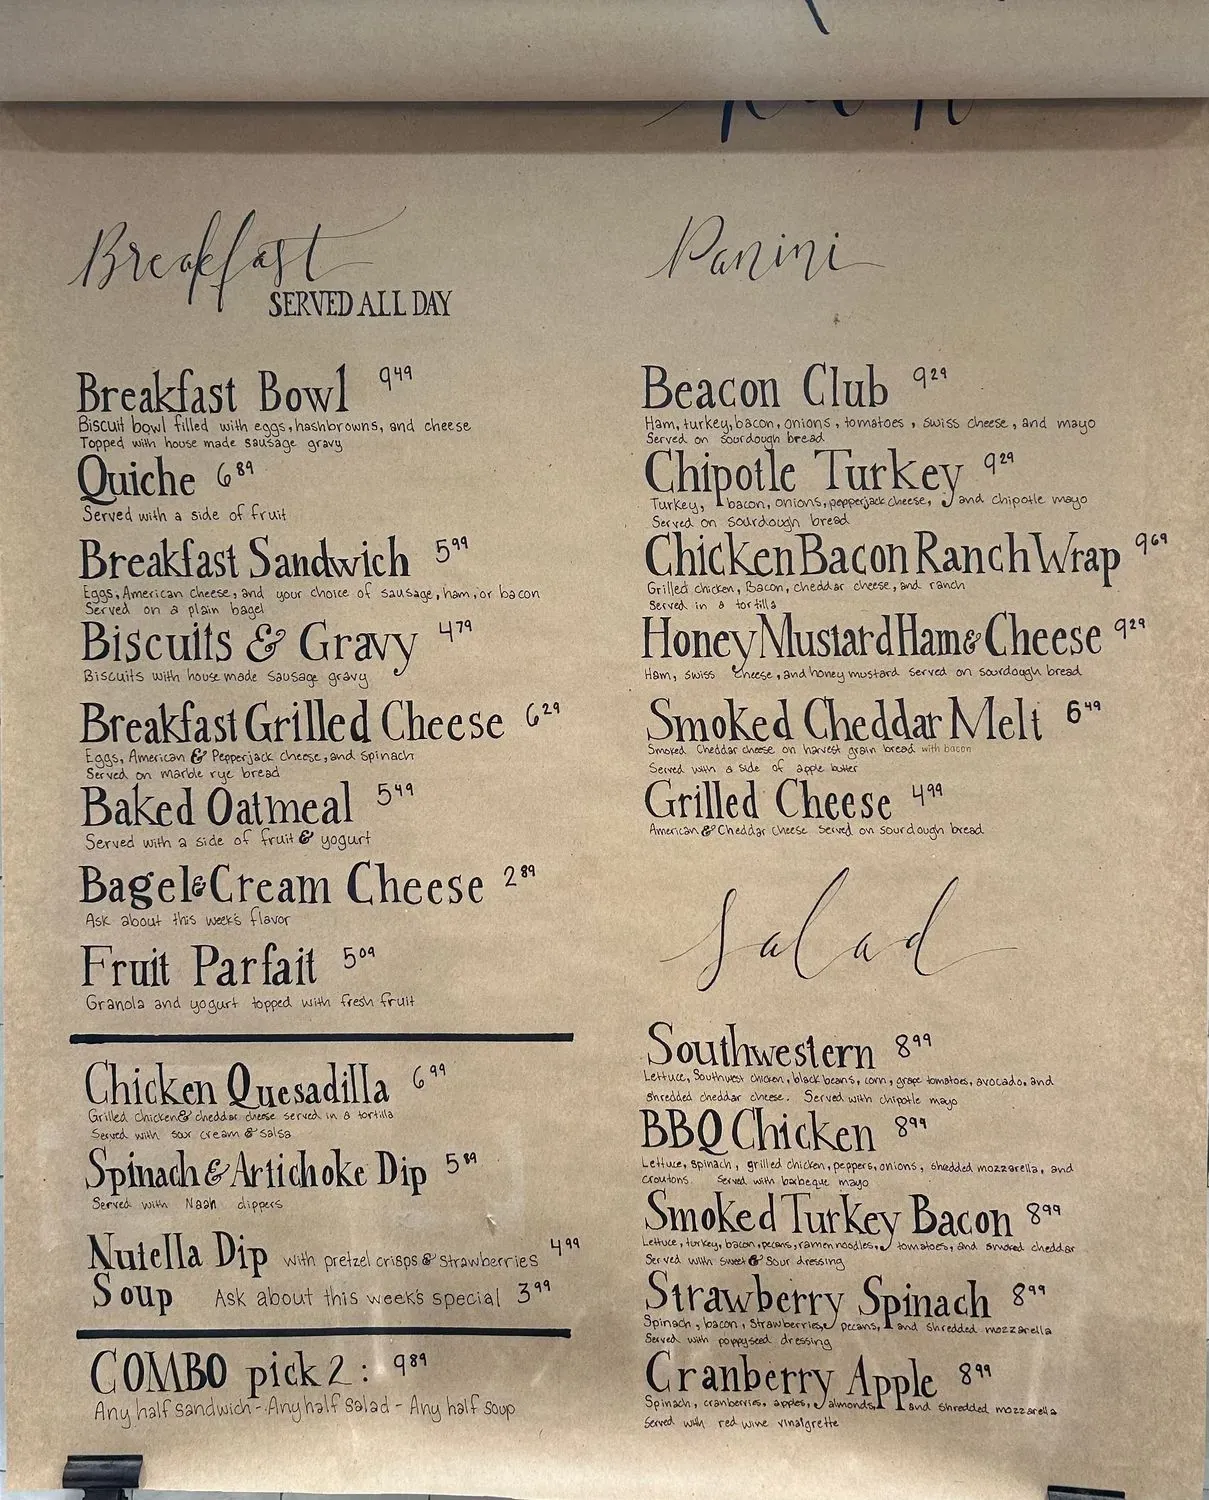 Breakfast
SERVED ALL DAY
Breakfast Bowl 9.49
Biscuit bowl filled with eggs, hashbrowns, and cheese
Topped with house made sausage gravy
Quiche 6.89
Served with a side of fruit
Breakfast Sandwich 5.99
Eggs, American cheese, and your choice of sausage, ham, or bacon
Served on a plain bagel
Biscuits & Gravy 4.79
Biscuits with house made sausage gravy
Breakfast Grilled Cheese 6.29
Eggs, American & Pepperjack cheese, and spinach
Served on marble rye bread
Baked Oatmeal 5.49
Served with a side of fruit & yogurt
Bagel & Cream Cheese 2.89
Ask about this week's flavor
Fruit Parfait 5.09
Granola and yogurt topped with fresh fruit
Chicken Quesadilla 6.99
Grilled chicken & cheddar cheese served in a tortilla
Served with sour cream & salsa
Spinach & Artichoke Dip 5.89
Served with Naan dippers
Nutella Dip with pretzel crisps & strawberries 4.99
Soup Ask about this week's special 3.99
COMBO pick 2: 9.89
Any half sandwich - Any half salad - Any half soup
Panini
Beacon Club 9.29
Ham, turkey, bacon, onions, tomatoes, swiss cheese, and mayo
Served on sourdough bread
Chipotle Turkey 9.29
Turkey, bacon, onions, pepperjack cheese, and chipotle mayo
Served on sourdough bread
Chicken Bacon Ranch Wrap 9.69
Grilled chicken, Bacon, cheddar cheese, and ranch
Served in a tortilla
Honey Mustard Ham & Cheese 9.29
Ham, swiss cheese, and honey mustard served on sourdough bread
Smoked Cheddar Melt 6.49
Smoked Cheddar cheese on harvest grain bread with bacon
Served with a side of apple butter
Grilled Cheese 4.99
American & Cheddar Cheese Served on sourdough bread
Salad
Southwestern 8.99
Lettuce, Southwest chicken, black beans, corn, grape tomatoes, avocado, and
shredded cheddar cheese. Served with chipotle mayo
BBQ Chicken 8.99
Lettuce, spinach, grilled chicken, peppers, onions, shredded mozzarella, and
croutons. Served with barbeque mayo
Smoked Turkey Bacon 8.99
Lettuce, turkey, bacon, pecans, ramen noodles, tomatoes, and smoked cheddar
Served with sweet & sour dressing
Strawberry Spinach 8.99
Spinach, bacon, strawberries, pecans, and shredded mozzarella
Served with poppyseed dressing
Cranberry Apple 8.99
Spinach, cranberries, apples, almonds, and shredded mozzarella
Served with red wine vinaigrette